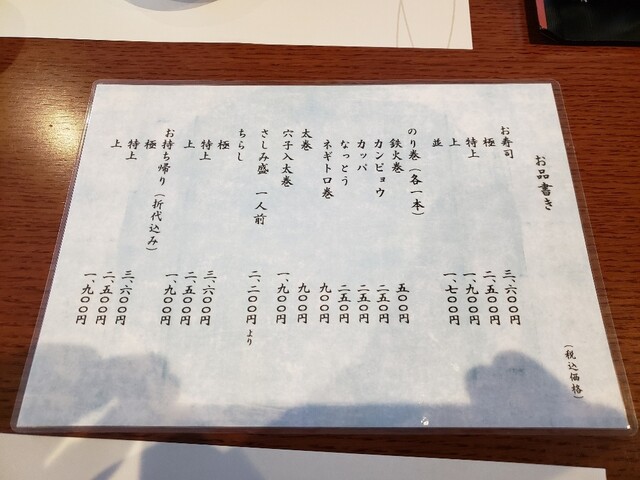 お品書き
(税込価格)
お寿司
極 三、六〇〇円
特上 二、五〇〇円
上 一、九〇〇円
並 一、七〇〇円
のり巻(各一本)
鉄火巻 五〇〇円
カンピョウ 二五〇円
カッパ 二五〇円
なっとう 二五〇円
ネギトロ巻 九〇〇円
太巻 九〇〇円
穴子入太巻 一、九〇〇円
さしみ盛 一人前 二、二〇〇円より
ちらし
極 三、六〇〇円
特上 二、五〇〇円
上 一、九〇〇円
お持ち帰り(折代込み)
極 三、六〇〇円
特上 二、五〇〇円
上 一、九〇〇円